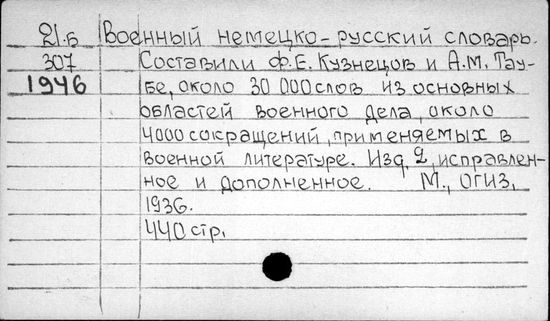 21.б Военный немецко-русский словарь.
307 Составили Ф.Е.Кузнецов и А.М.Тау-
1946 бе, около 30 000 слов из основных
областей военного дела, около
4000 сокращений, применяемых в
военной литературе. Изд. 2, исправлен-
ное и дополненное. М., ОГИЗ,
1936.
440 стр.